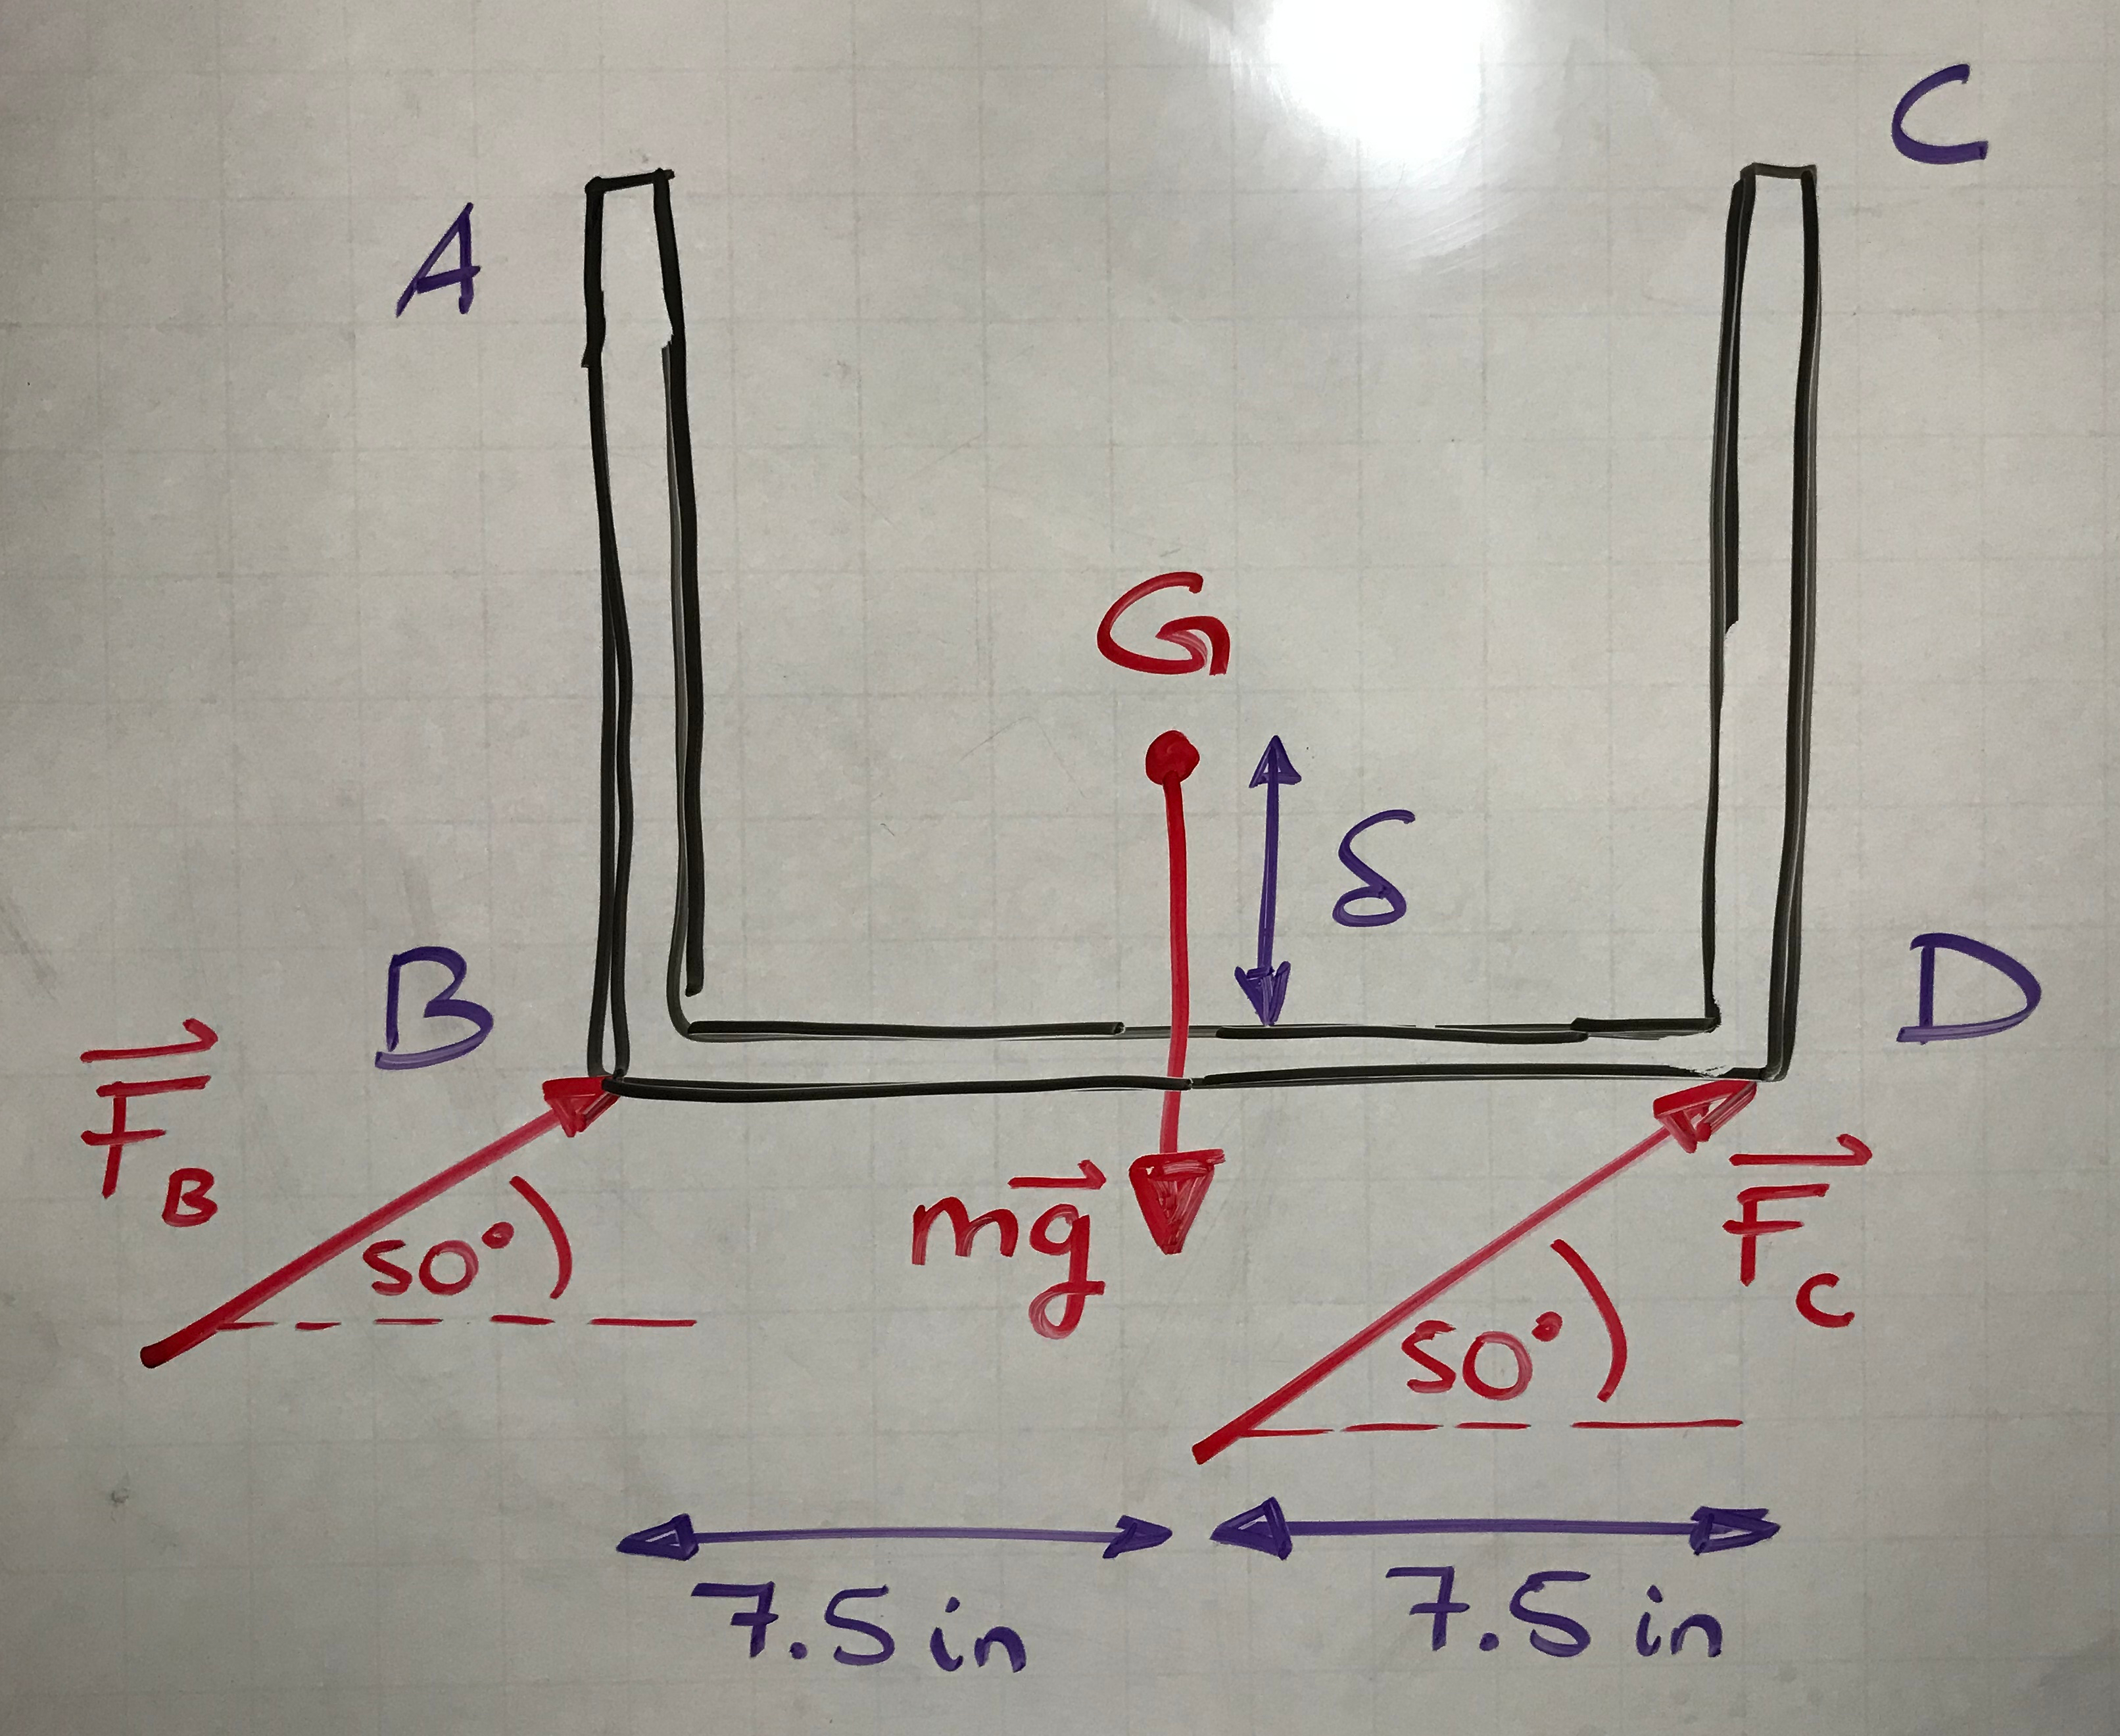 C
A
G
δ
B
D
F⃗_B
50°
mg⃗
F⃗_C
50°
7.5 in
7.5 in